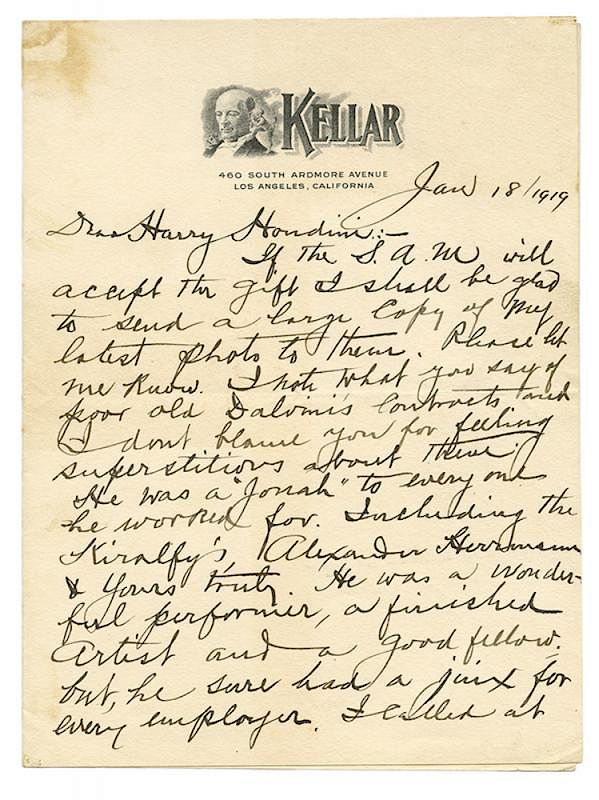 KELLAR
460 SOUTH ARDMORE AVENUE
LOS ANGELES, CALIFORNIA
Jan 18/1919
Dear Harry Houdini:-
If the S.A.M. will
accept the gift I shall be glad
to send a large Copy of My
latest photo to them. Please let
me know. I note what you say of
poor old Dalvini's Contracts and
I dont blame you for feeling
superstitious about them.
He was a "Jonah" to every one
he worked for. Including the
Kiralfy's, Alexander Herrmann
& Yours truly. He was a wonder-
ful performer, a finished
Artist and a good fellow,
but, he sure had a jinx for
every employer. I called at